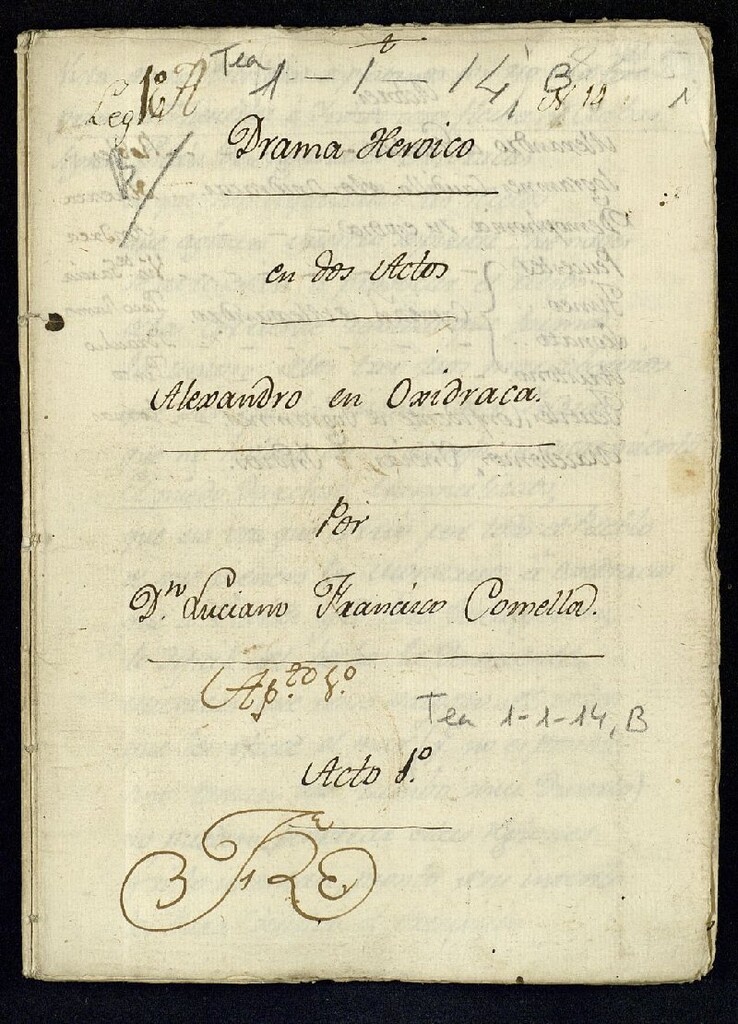 Tea 1-1-14, B
Leg.º 1.º N 14 1
Drama Heroico
en dos Actos
Alexandro en Oxidraca.
Por
D.ⁿ Luciano Francisco Comella.
Ap.to 1.º
Tea 1-1-14, B
Acto 1.º